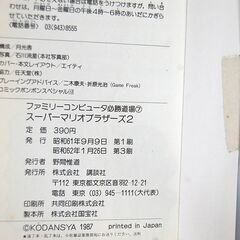 電話をうけつけますが、
は、月曜日〜金曜日の午後4時〜6時のあいだにかぎら
せていただきます。
〈電話番号〉03(943)8555
構成／月光舎
写真／石川流星(本社写真部)
カバー・本文レイアウト／エイティ
協力／任天堂(株)
アドバイス／二木康夫・折原光治(Game Freak)
コミックボンボンスペシャル⑪
ファミリーコンピュータ必勝道場⑦
スーパーマリオブラザーズ2
定価 390円
発行 昭和61年9月9日 第1刷
昭和62年1月26日 第3刷
発行者 野間惟道
発行所 株式会社 講談社
〒112 東京都文京区音羽2-12-21
電話 東京 03(945)-1111(大代表)
印刷所 共同印刷株式会社
製本所 株式会社国宝社
©KODANSYA 1987 printed in Japan